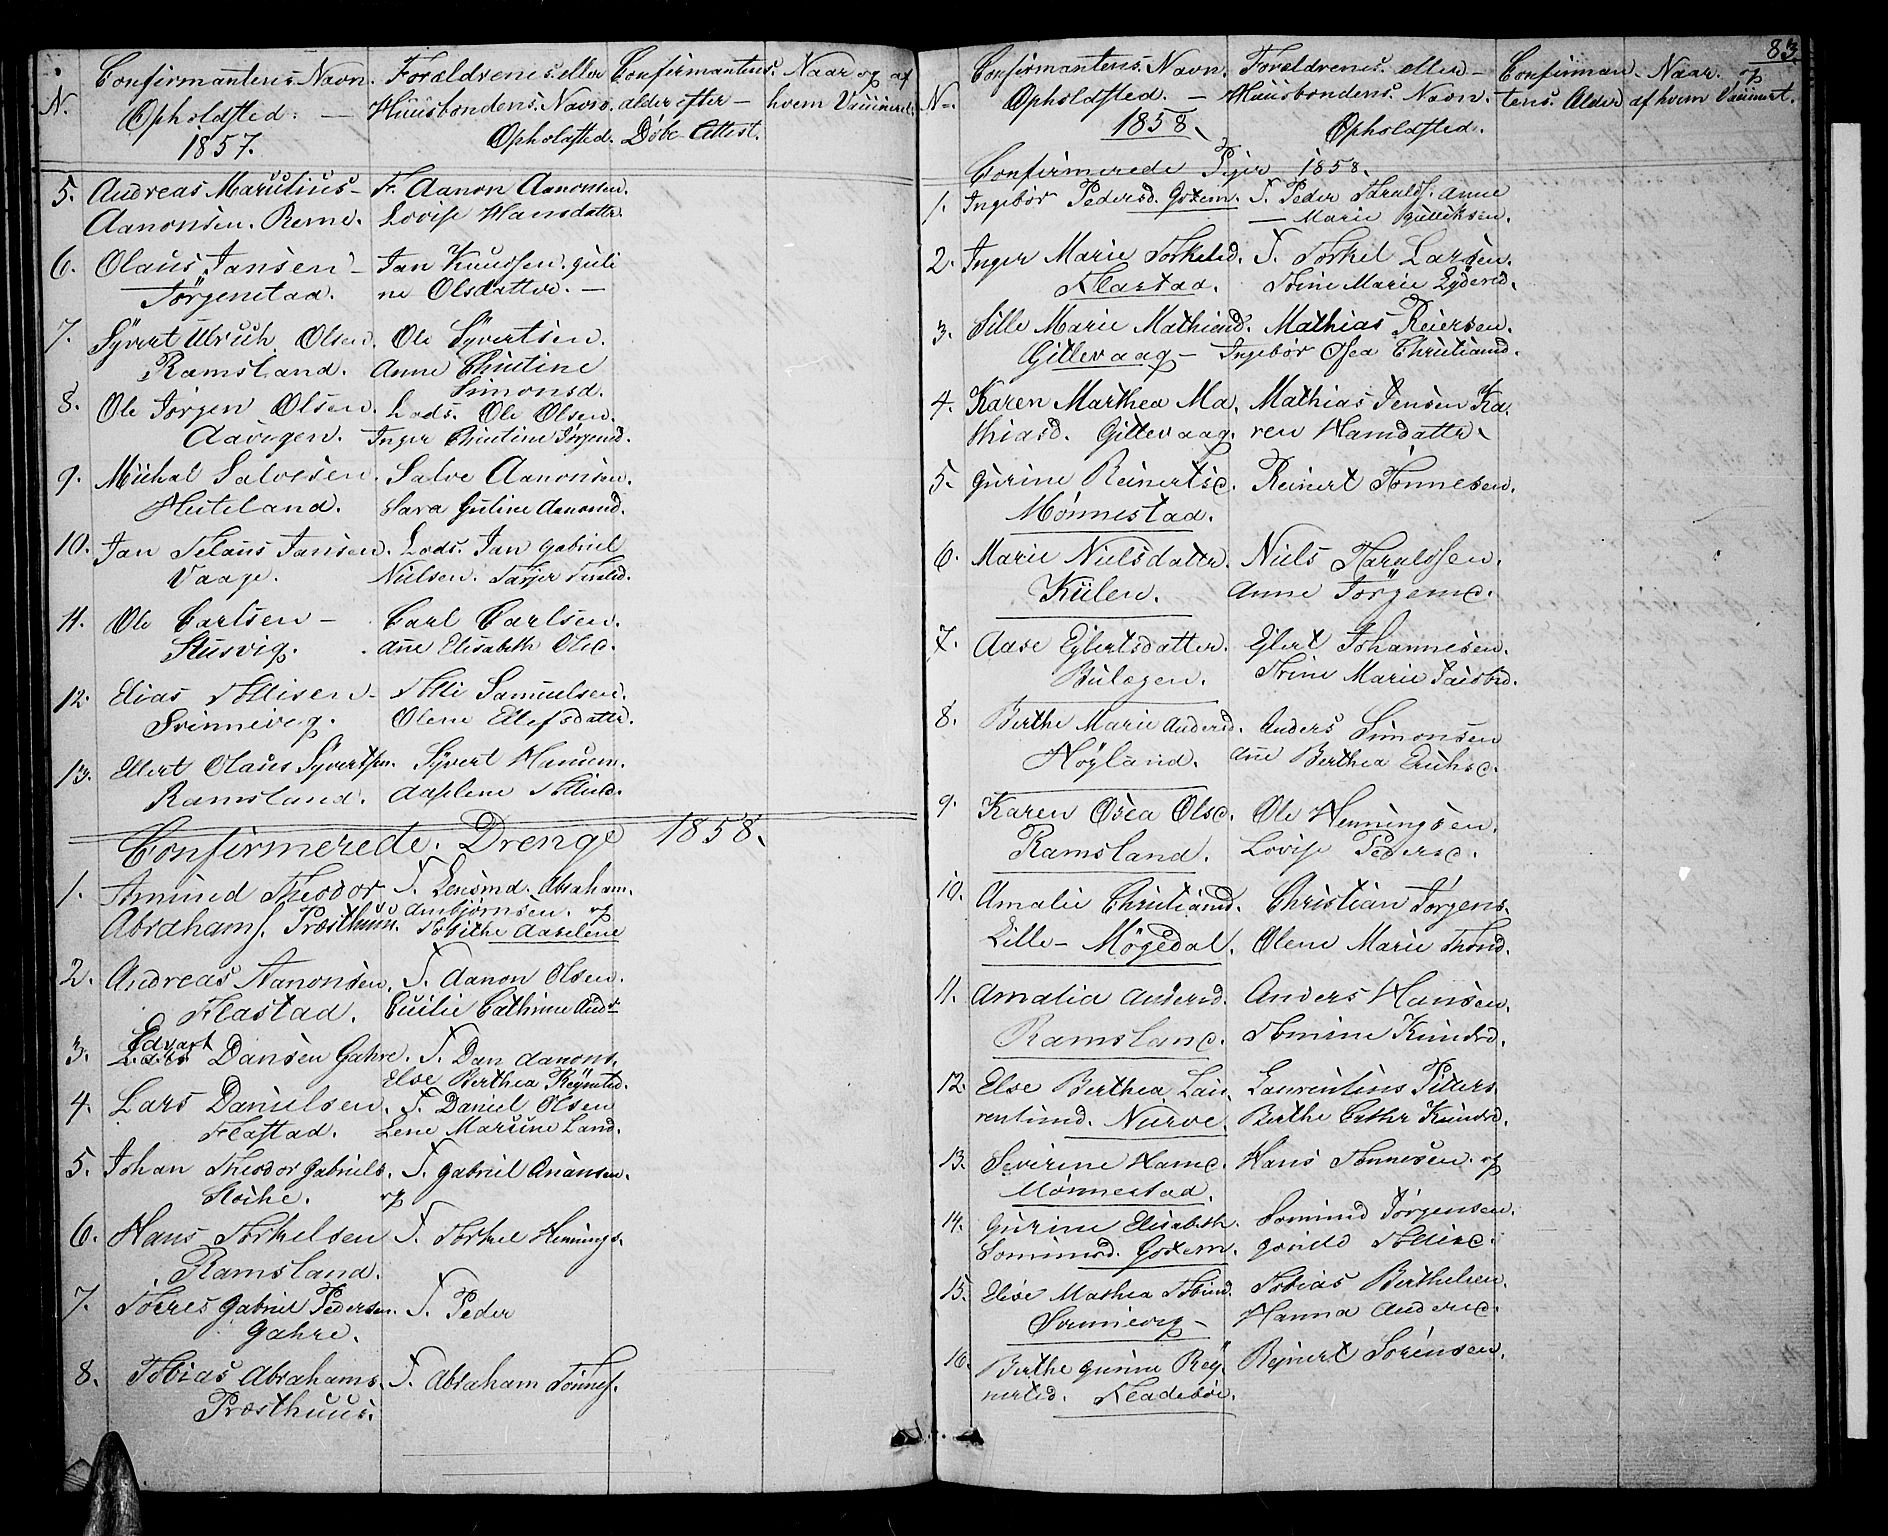 N.
Confirmantens Navn.
Opholdsted.
1857.
Forældrenes eller
Huusbondens Navn.
Opholdsted.
Confirmantens
alder efter
Døbe Attest.
Naar og af
hvem Vaccineret
5. Andreas Maritius
Aanonsen. Reme.
F. Aanon Aanonsen.
Lovise Hansdattr.
6. Olaus Jansen
Jørgenstad.
Jan Knudsen. Guli
ne Olsdatter.
7. Syvert Ulrich Olsen.
Ramsland.
Ole Syvertsen.
Anne Christine
Simonsd.
8. Ole Jørgen Olsen.
Aavigen.
Lods. Ole Olsen.
Inger Christine Jørgensd.
9. Michal Salvesen
Huseland.
Salve Aanonsen.
Sara Guline Aanonsd.
10. Jan Jansen.
Vaage.
Lods. Jan Gabriel
Nielsen.
11. Ole Carlsen
Stusvig.
Carl Carlsen.
Ane Elisabeth Olsd.
12. Elias Tollisen
Svinnevig.
Tolli Samuelsen.
Olene Ellefsdattr.
13. Ellert Olaus Syvertsen.
Ramsland.
Syvert Hansen.
Aaslene Tollisd.
Confirmerede. Drenge 1858.
1. Amund Theodor
Abrahams. Præsthuus.
F. Lensmd. Abraham.
Ambjørnsen. og
Tobithe Aaselene
2. Andreas Aanonsen.
Flastad.
F. Aanon Olsen.
Cecilie Cathrine And
3. Edvart
Dansen Gahre.
F. Dan Aanons.
Else Berthea Reÿnertsd.
4. Lars Danielsen.
Flastad.
F. Daniel Olsen
Lene Marine Land.
5. Johan Theodor Gabriels.
F. Gabriel Anansen.
og
6. Hans Torkelsen
Ramsland.
F. Torkel Hennings.
7. Torres Gabriel Pedersen.
Gahre.
F. Peder
8. Tobias Abrahams.
Præsthuus.
F. Abraham Tønnes.
83.
N.
Confirmantens Navn.
Opholdsted.
1858.
Forældrenes eller
Huusbondens Navn.
Opholdsted.
Confirman
tens Alder
Naar og
af hvem Vaccineret.
Confirmerede Piger 1858.
1. Ingebør Pedersd. Goxem.
F. Peder Haralds. Anne
Marie Gulliksen.
2. Inger Marie Torkelsd.
Flastad.
F. Torkel Larsen.
Trine Marie Eyversd.
3. Sille Marie Mathiasd.
Gillevaag
Mathias Reiersen.
Ingebør Osea Christiansd.
4. Karen Marthea Ma
thiasd. Gillevaag.
Mathias Jensen Ka
ren Hansdattr.
5. Gurine Reinertsd.
Mønnestad.
Reinert Tønnesen.
6. Marie Nielsdattr.
Kulen.
Niels Haraldsen.
Anne Jørgensd.
7. Aase Eylertsdatter.
Bulægen.
Eylert Johannesen.
Trine Marie Jacobsd.
8. Berthe Marie Andersd.
Høyland.
Anders Simonsen
Ane Berthea Erichsd.
9. Karen Osea Olsd.
Ramsland.
Ole Henningsen.
Lovise Pedersd.
10. Amalie Christiansd.
Lille Møgedal.
Christian Jørgens.
Olene Marie Trond.
11. Amalia Andersd.
Ramsland.
Anders Hansen.
Tomine Knudsd.
12. Else Berthea Lau
rentiusd. Narve.
Laurentius Pitters.
Berthe Cathr Knudsd.
13. Severine Hansd.
Mønnestad.
Hans Tønnesen. og
14. Gurine Elisabeth
Somundsd. Goxem.
Somund Jørgensen.
Gunild Tollisd.
15. Elise Mathea Tobiasd.
Svinnevig
Tobias Berthelsen.
Hanna Andersd.
16. Berthe Gurine Reÿ
nertsd. Kladebøe.
Reinert Sørensen.